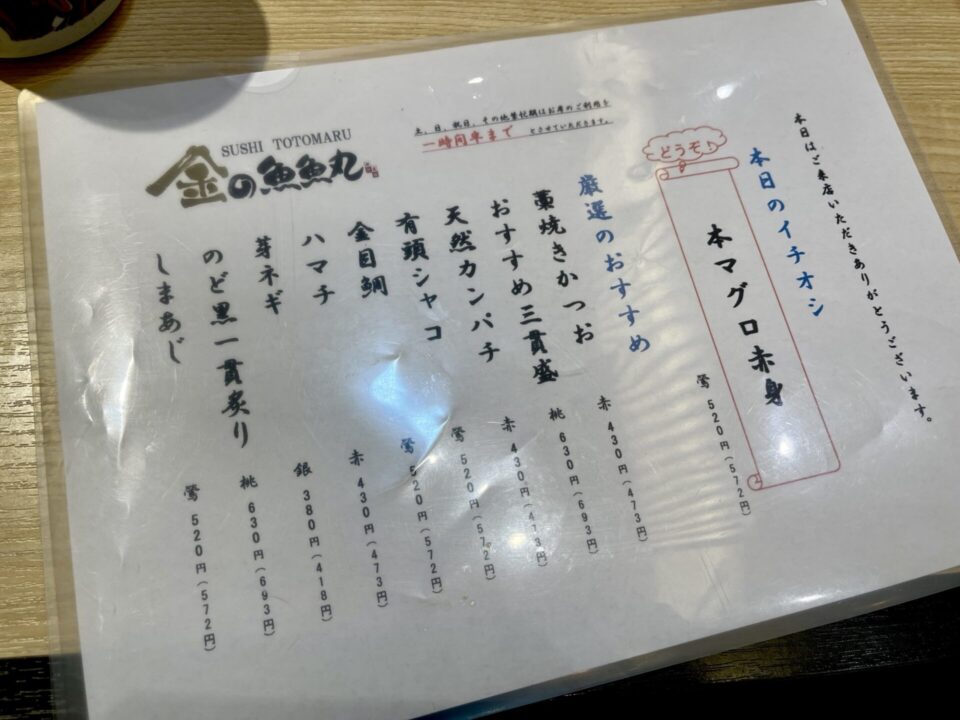 本日はご来店いただきありがとうございます。
本日のイチオシ
どうぞ♪
本マグロ赤身 鶯 520円(572円)
厳選のおすすめ
藁焼きかつお 赤 430円(473円)
おすすめ三貫盛 桃 630円(693円)
天然カンパチ 赤 430円(473円)
有頭シャコ 鶯 520円(572円)
金目鯛 鶯 520円(572円)
ハマチ 赤 430円(473円)
芽ネギ 銀 380円(418円)
のど黒一貫炙り 桃 630円(693円)
しまあじ 鶯 520円(572円)
土、日、祝日、その他繁忙期はお席のご利用を
一時間半まで とさせていただきます。
SUSHI TOTOMARU
金の魚魚丸